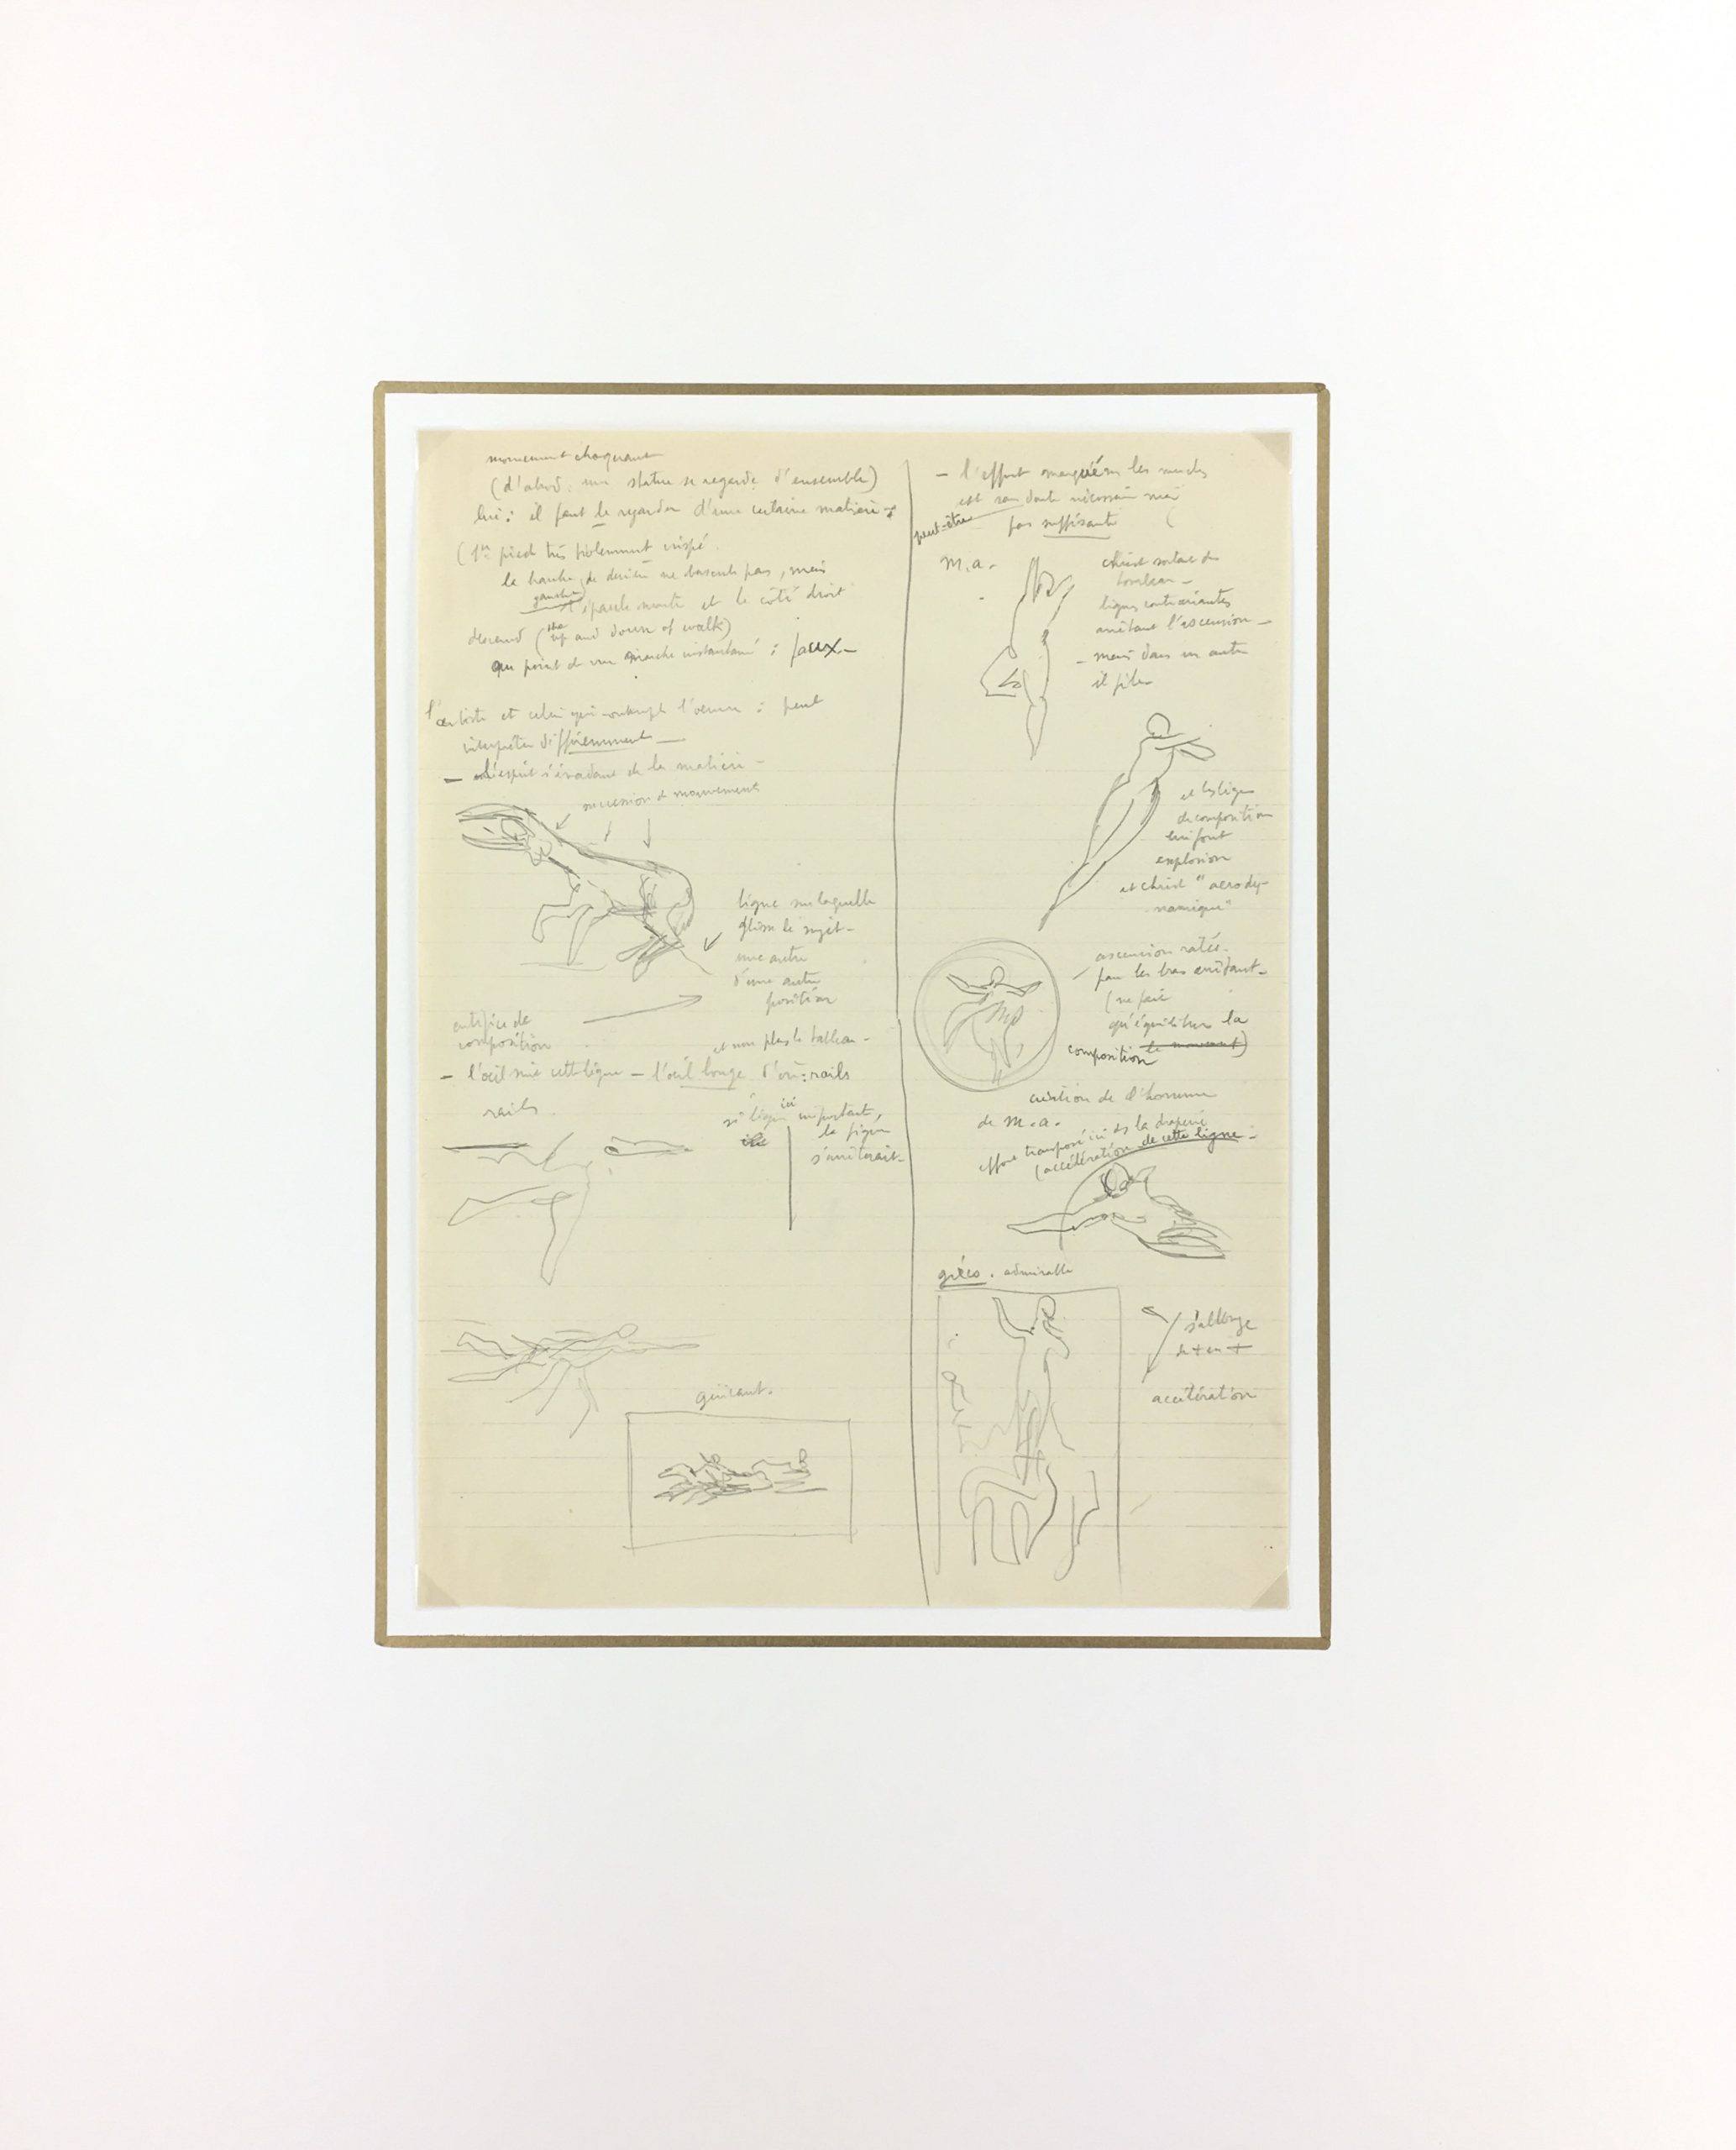 mouvement choquant
(d'abord: une statue se regarde d'ensemble)
lui: il faut le regarder d'une certaine matière
(1er pied très violemment crispé.
la hanche de derrière ne bascule pas, mais
gauche
l'épaule monte et le côté droit
descend (the up and down of walk)
au point de vue marche instantané: faux –
l'artiste et celui qui contemple l'œuvre: peut
interpréter différemment –
– l'esprit s'évadant de la matière –
succession de mouvements
ligne sur laquelle
glisse le sujet –
une autre
d'une autre
position
artifice de
composition
et non plus le tableau –
– l'œil suit cette ligne – l'œil bouge d'où: rails
rails
si ligne ici important,
la figure
s'arrêterait –
géricault.
– l'effort marqué les muscles
est sans doute nécessaire mais
peut-être
pas suffisante
m.a.
christ sortant du
tombeau –
lignes contrariantes
arrêtant l'ascension –
– mais dans un autre
il file
et les lignes
de composition
lui font
explosion
et christ "aerody-
namique"
ascension ratée
par les bras arrêtant –
(ne fait
qu'équilibrer la
composition le mouvement)
création de l'homme
de m.a.
effort transposé ici ds la draperie
(accélération de cette ligne –
gréco. admirable
s'allonge
de + en +
accélération